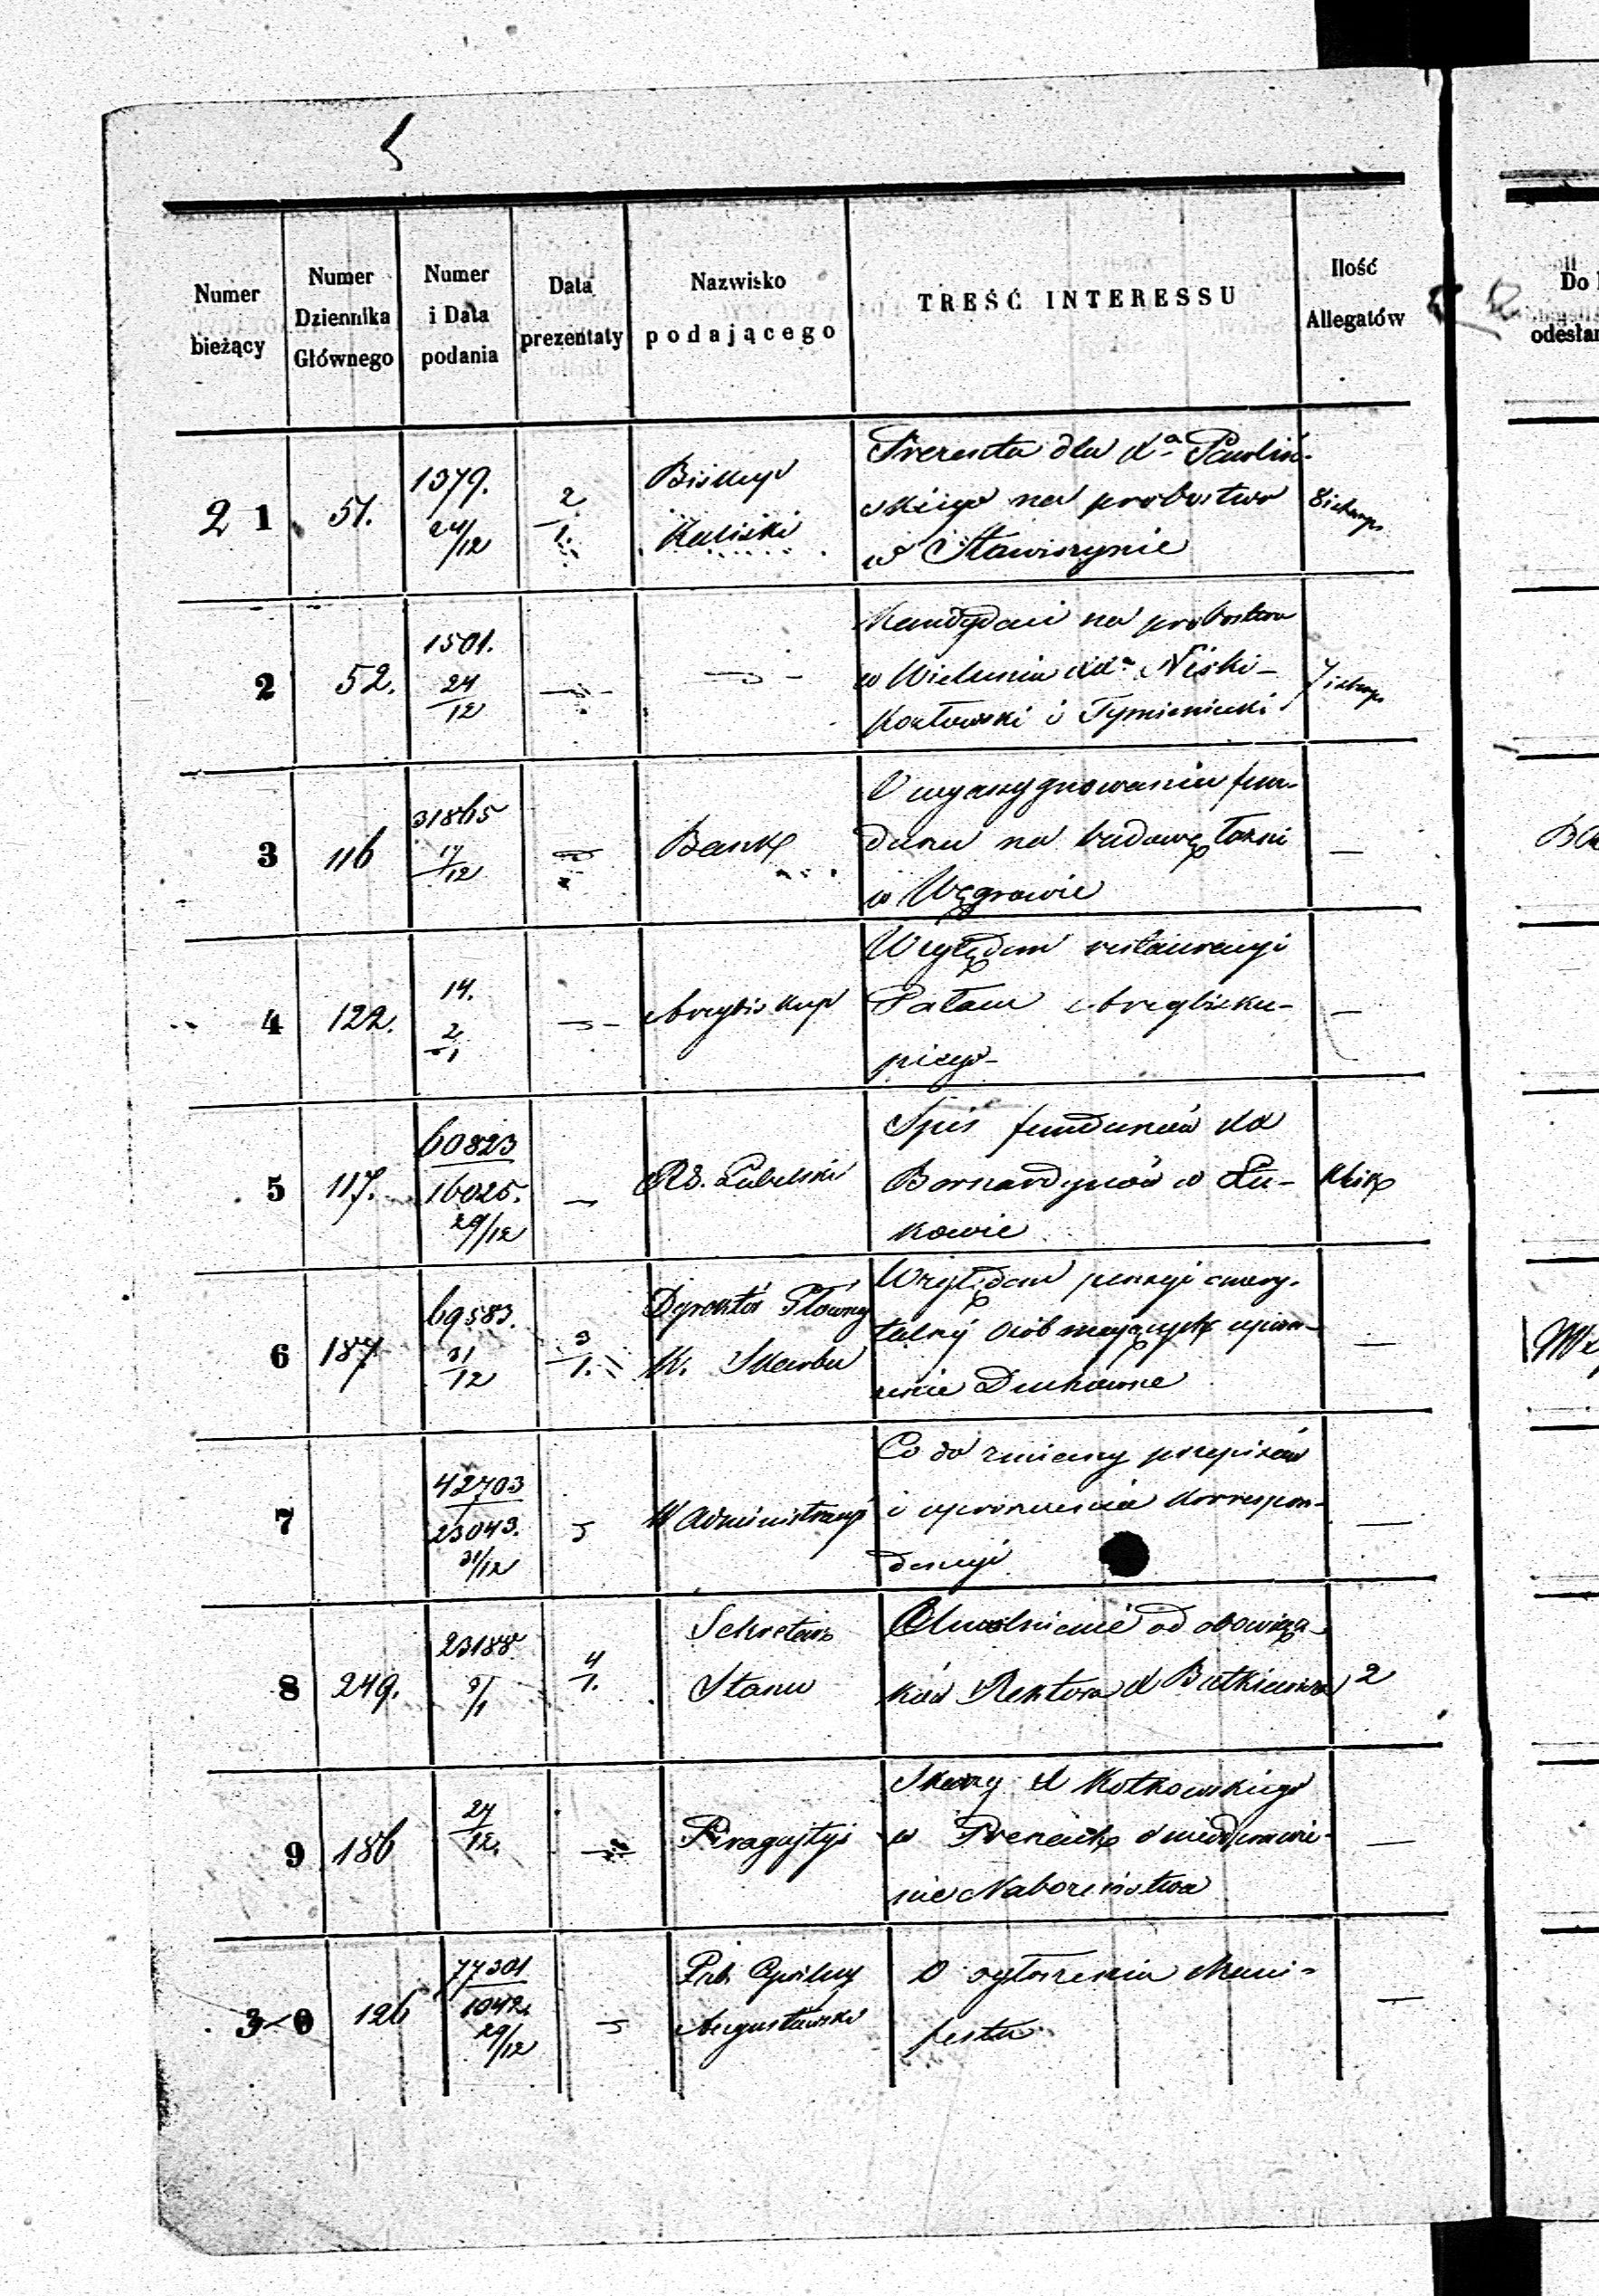 5
Numer bieżący
Numer Dziennika Głównego
Numer i Data podania
Data prezentaty
Nazwisko podającego
TREŚĆ INTERESSU
Ilość Allegatów
Do
odesłan
2 1
51.
1379.
24/12
2/1.
Biskup
Kaliski
Prezenta dla Xa Pawliń-
skiego na probostwo
w Stawiszynie
8
2
52.
1501.
24/12
Kandydaci na probostwo
w Wieluniu XXa Niski-
Kozłowski i Tymieniecki
7
3
116
31865
17/12
Bank
O wyassygnowaniu fun-
duszu na budowę łaźni
w Węgrowie
—
4
122.
14.
2/1
Arcybiskup
Względem restauracyi
Pałacu Arcybisku-
piego-
—
5
117.
60823
16025.
29/12
—
RG. Lubelski
Spis funduszów XX
Bernardynów w Łu-
kowie
6
187
69583.
31/12
3/1.
Dyrektor Główny
K. Skarbu
Względem pensyi emery-
talnéj osób mających
Duchowne
—
7
42703
23043.
31/12
W Administracyi
Co do zmiany przepisów
i uproszczenia korrespon-
dencyi
—
8
249.
23188.
3/1
4/1.
Sekretarz
Stanu
Uwolnienie od obowiąz-
ków Rektora X Butkiewicza
2
9
186
27/12.
Skargi X Kotkowskiego
w
nie Nabożeństwa
—
126
77301
1042.
29/12
Gub. Cywilny
Augustowski
O ogłoszeniu Mani-
festu
—